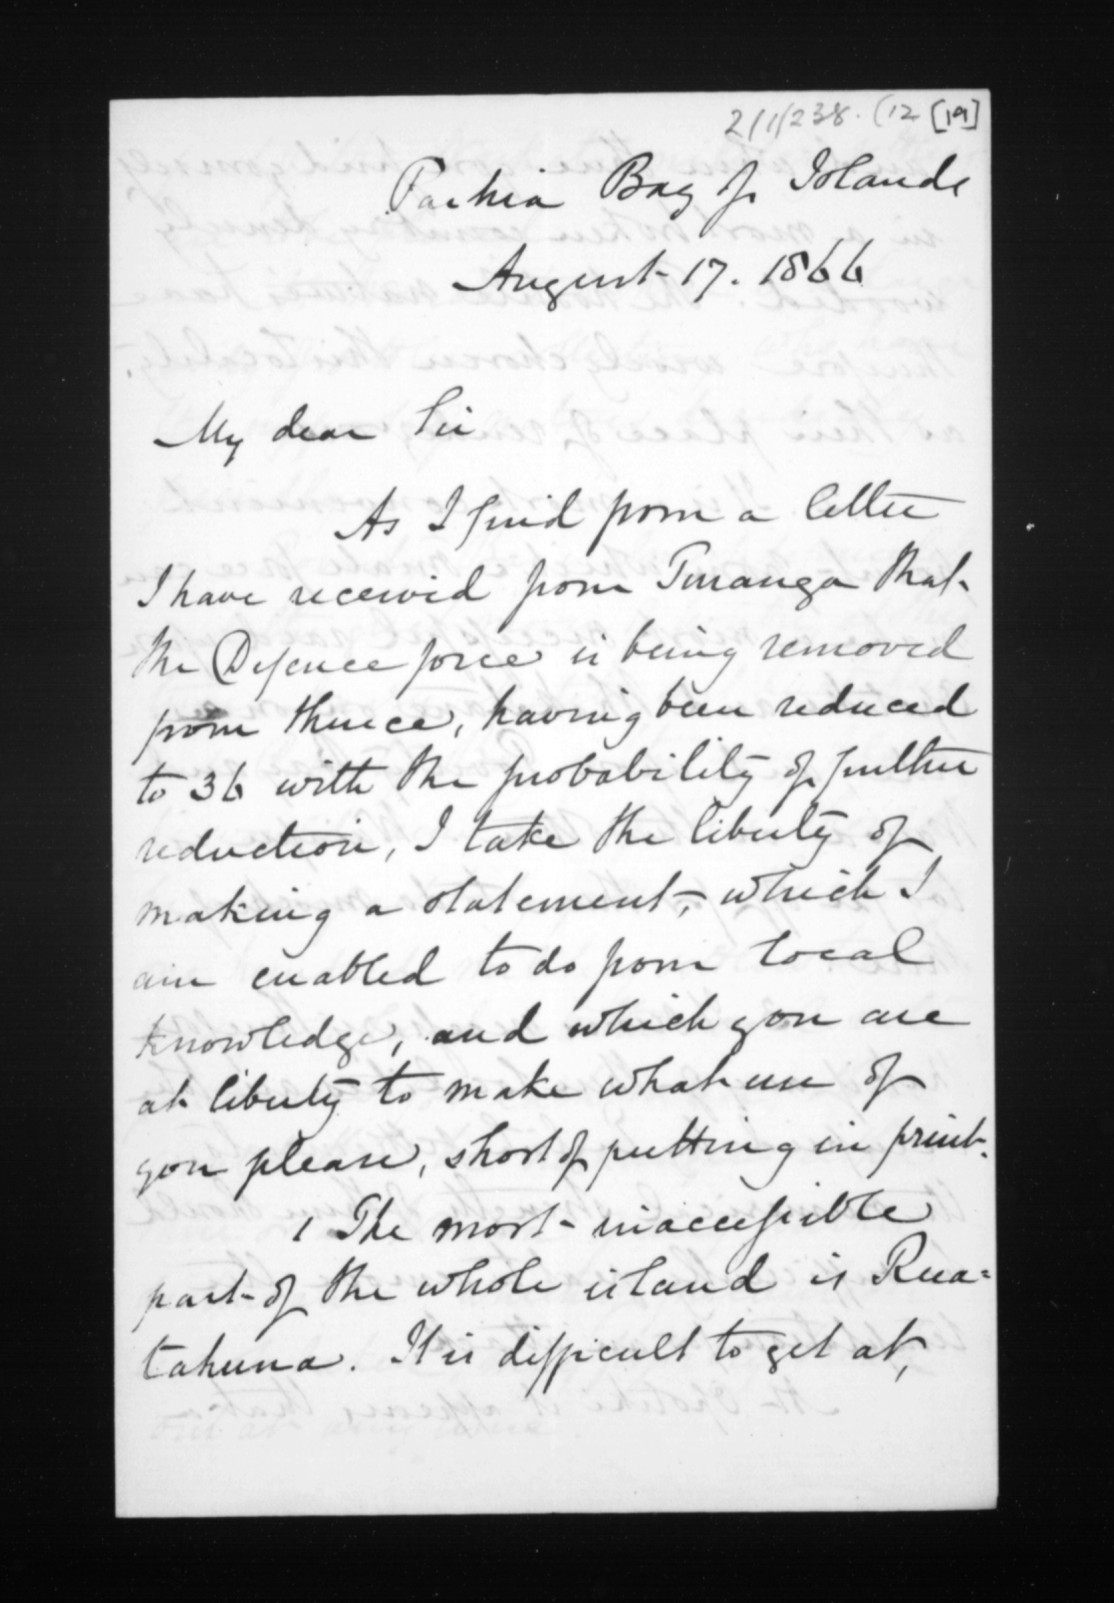 2/1/238. (12 [19]
Paihia Bay of Islands
August 17. 1866
My dear Sir
As I find from a letter
I have received from Turanga that
the Defence force is being removed
from thence, having been reduced
to 36 with the probability of further
reduction, I take the liberty of
making a statement, which I
am enabled to do from local
knowledge, and which you are
at liberty to make what use of
you please, short of putting in print.
1 The most inaccessible
part of the whole island is Rua=
tahuna. It is difficult to get at,